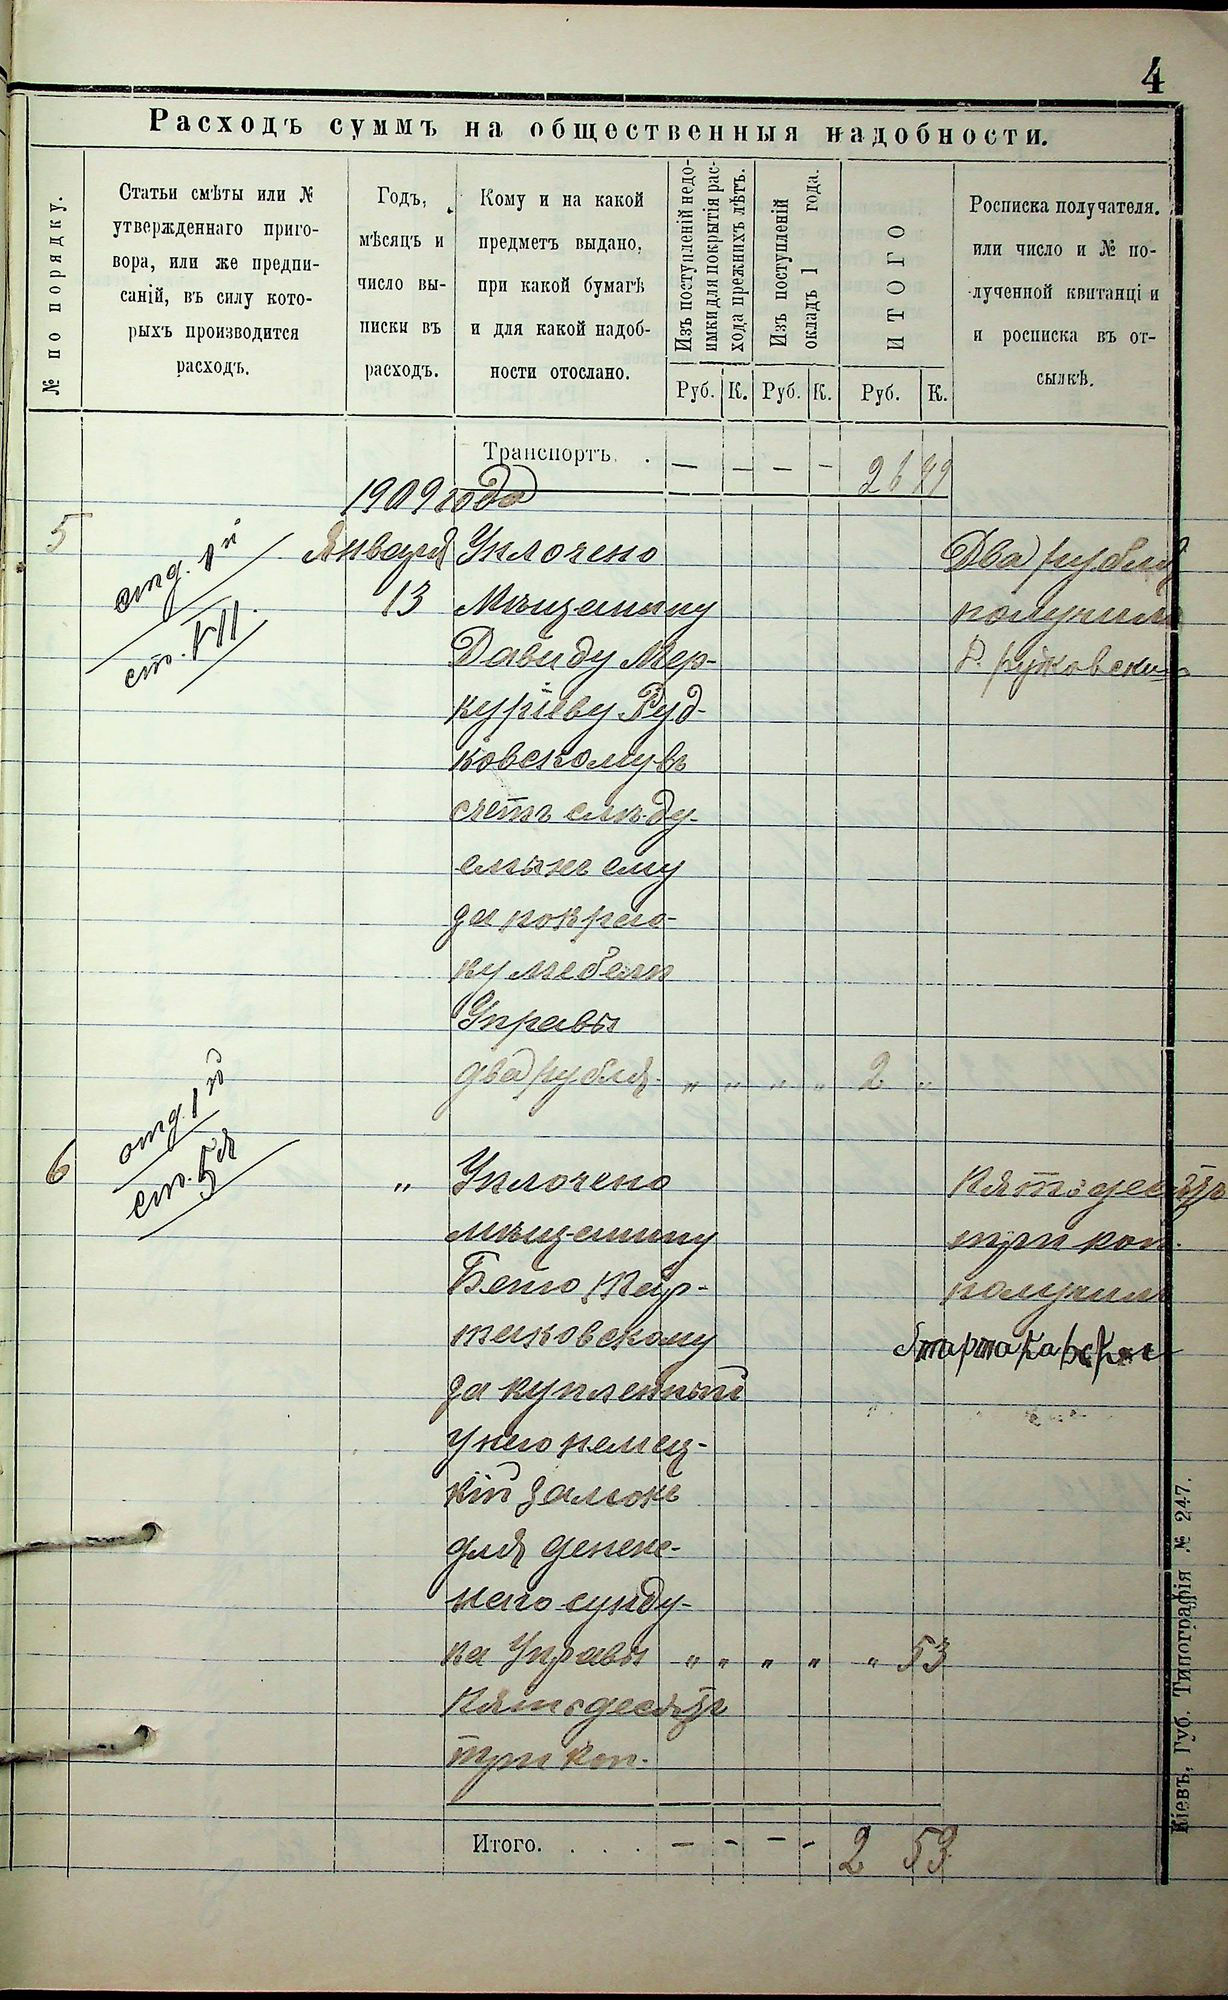 4
Расходъ суммъ на общественныя надобности.
№ по порядку.
Статьи смѣты или №
утвержденнаго приго-
вора, или же предпи-
саній, въ силу кото-
рыхъ производится
расходъ.
Годъ,
мѣсяцъ и
число вы-
писки въ
расходъ.
Кому и на какой
предметъ выдано,
при какой бумагѣ
и для какой надоб-
ности отослано.
Изъ поступленій недо-
имки для покрытія рас-
хода прежнихъ лѣтъ.
Изъ поступленій
окладъ 1 года.
ИТОГО
Руб. К. Руб. К. Руб. К.
Росписка получателя.
или число и № по-
лученной квитанці и
и росписка въ от-
сылкѣ.
Транспортъ. . — — — — 26
1909 года
5
отд. 1й
ст. VII.
Января
13
Уплочено
Мѣщанину
Давиду Мер-
куріеву Руд-
ковскому въ
счетъ слѣду-
емыхъ ему
за покрас-
ку мебели
Управы
два рубля. „ „ „ „ 2 „
Два рубля
получилъ
6
отд. 1го
ст. 5я
„
Уплочено
мѣщанину
тиковскому
за купленный
у него немец-
кій замокъ
для денеж-
наго сунду-
ка Управы „ „ „ „ „ 53
Пятьдесятъ
три коп.
Пятьдесятъ
три коп.
получилъ
Итого. . . . — — — — 2 53
Кіевъ, Губ. Типографія № 247.